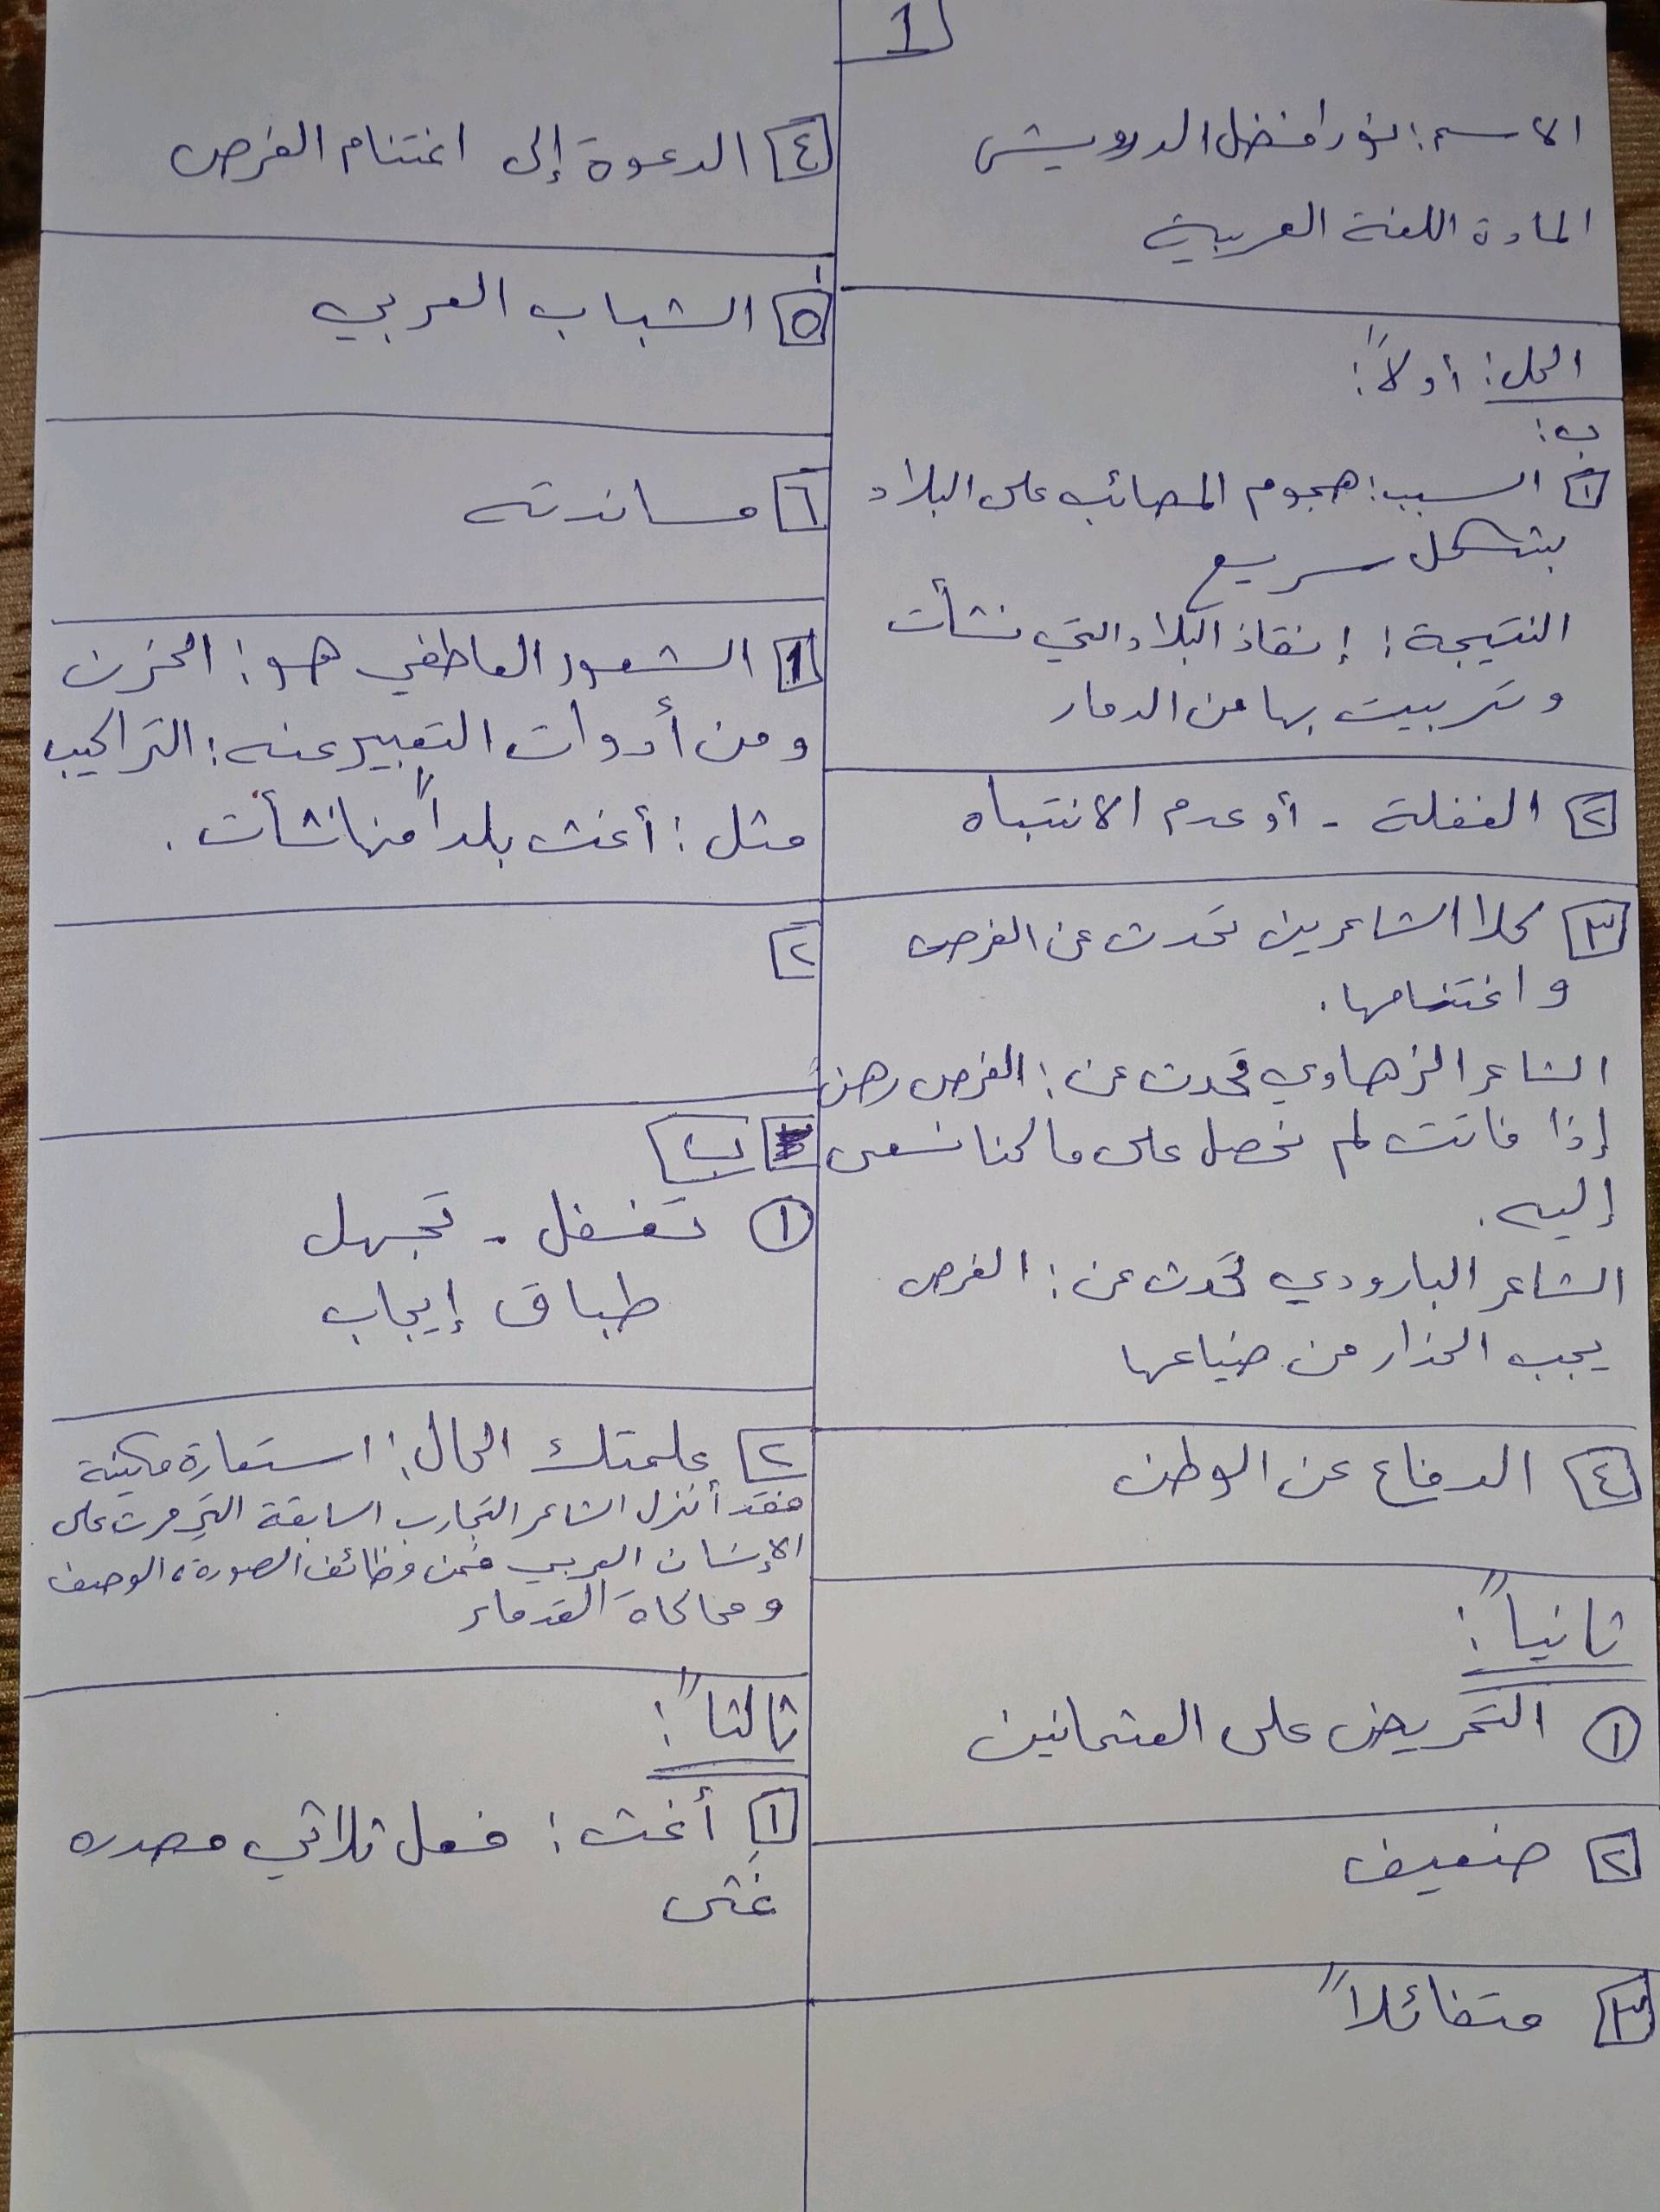 1
الاسم: نورا فضل الدرويش
المادة اللغة العربية
الحل: أولاً:
ب:
١ السبب: هجوم المصائب على البلاد
بشكل سريع
النتيجة: إنقاذ البلاد التي نشأت
وتربيت بها من الدمار
٢ الغفلة - أو عدم الانتباه
٣ كلا الشاعرين تحدث عن الفرص
واغتنامها.
الشاعر الزهاوي تحدث عن: الفرص رهن
إذا فاتت لم نحصل على ما كنا نسعى
إليه.
الشاعر البارودي تحدث عن: الفرص
يجب الحذار من ضياعها
٤ الدفاع عن الوطن
ثانياً:
١ التحريض على العثمانين
٢ ضعيف
٣ متفائلاً
٤ الدعوة إلى اغتنام الفرص
٥ الشباب العربي
٦ مساندته
1 الشعور العاطفي هو: الحزن
ومن أدوات التعبير عنه: التراكيب
مثل: أغث بلداً منها نشأت.
٢
ب
١ تغفل - تجهل
طباق إيجاب
٢ علمتك الحال: استعارة مكنية
فقد أنزل الشاعر التجارب السابقة التي مرت على
الإنسان العربي فمن وظائف الصورة، الوصف
ومحاكاة القدماء
ثالثاً:
١ أغث: فعل ثلاثي مصدره
غثى